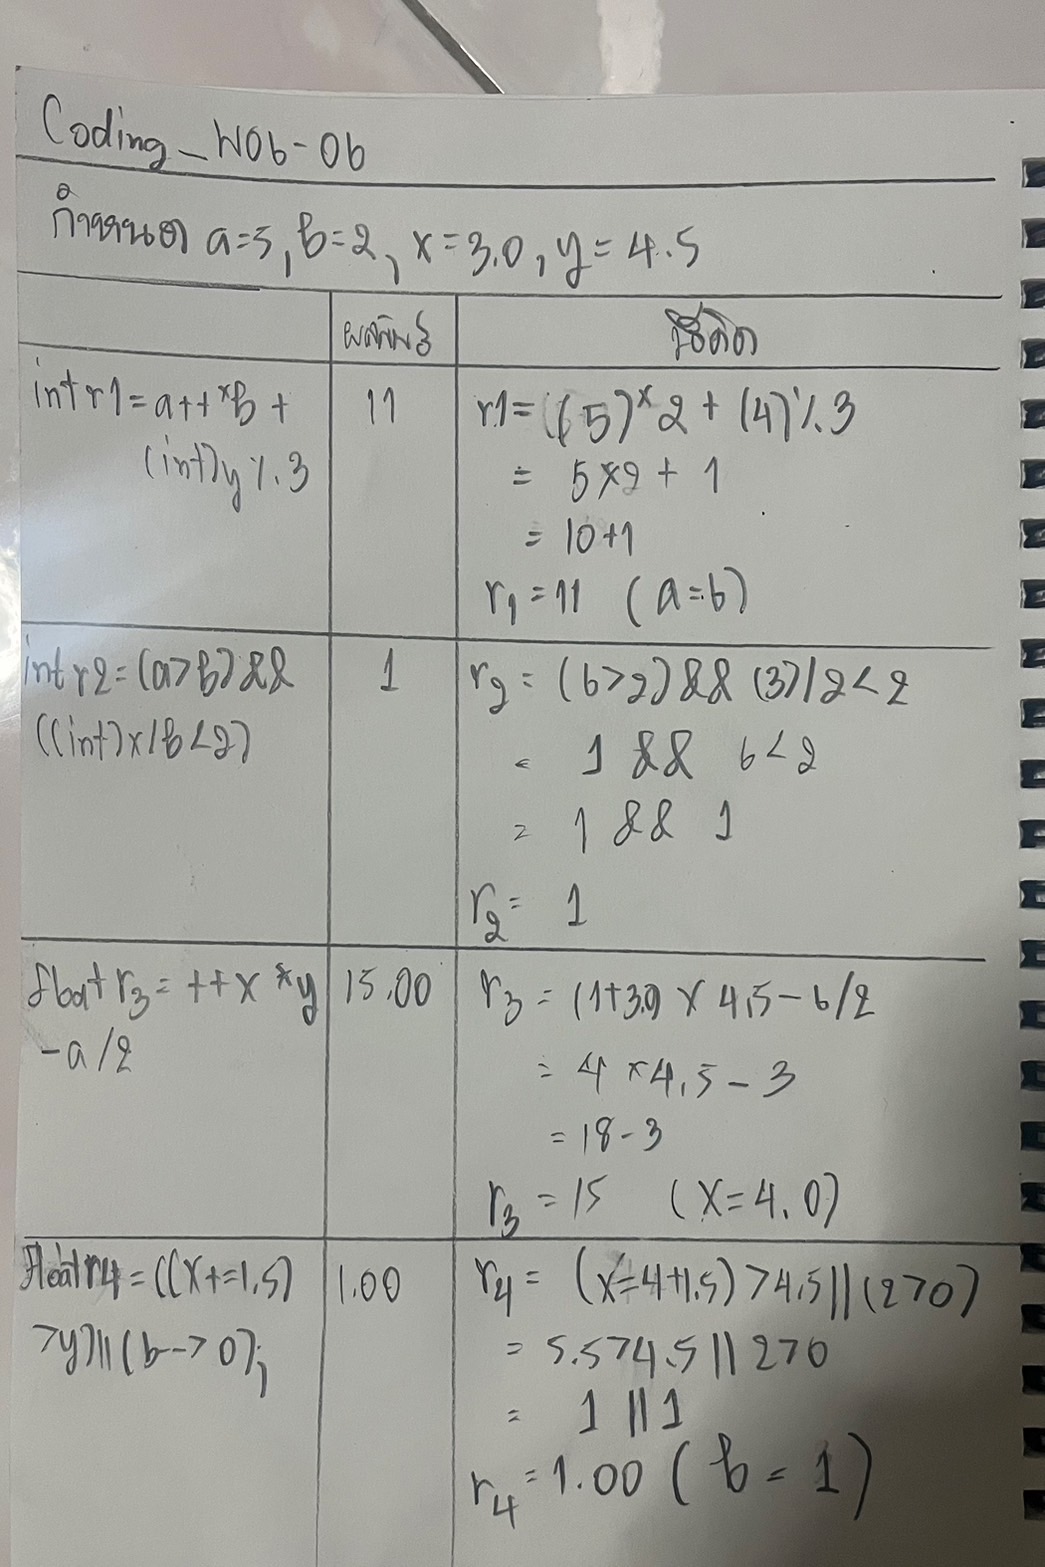 Coding_W06-06
กำหนด a=5, b=2, x=3.0, y=4.5
ผลลัพธ์ วิธีคิด
int r1=a++*b+
(int)y%3
11
r1=((5)*2+(4)%3
= 5*2+1
= 10+1
r1=11 (a=6)
int r2=(a>b)&&
((int)x/b<2)
1
r2=(6>2)&&(3)/2<2
= 1 && 6<2
= 1 && 1
r2= 1
float r3=++x*y
-a/2
15.00
r3=(1+3.0)×4.5-6/2
= 4×4.5-3
=18-3
r3=15 (x=4.0)
float r4=((x+=1.5)
>y)||(b-->0);
1.00
r4= (x=4+1.5)>4.5||(2>0)
= 5.5>4.5||2>0
= 1||1
r4=1.00 (b=1)